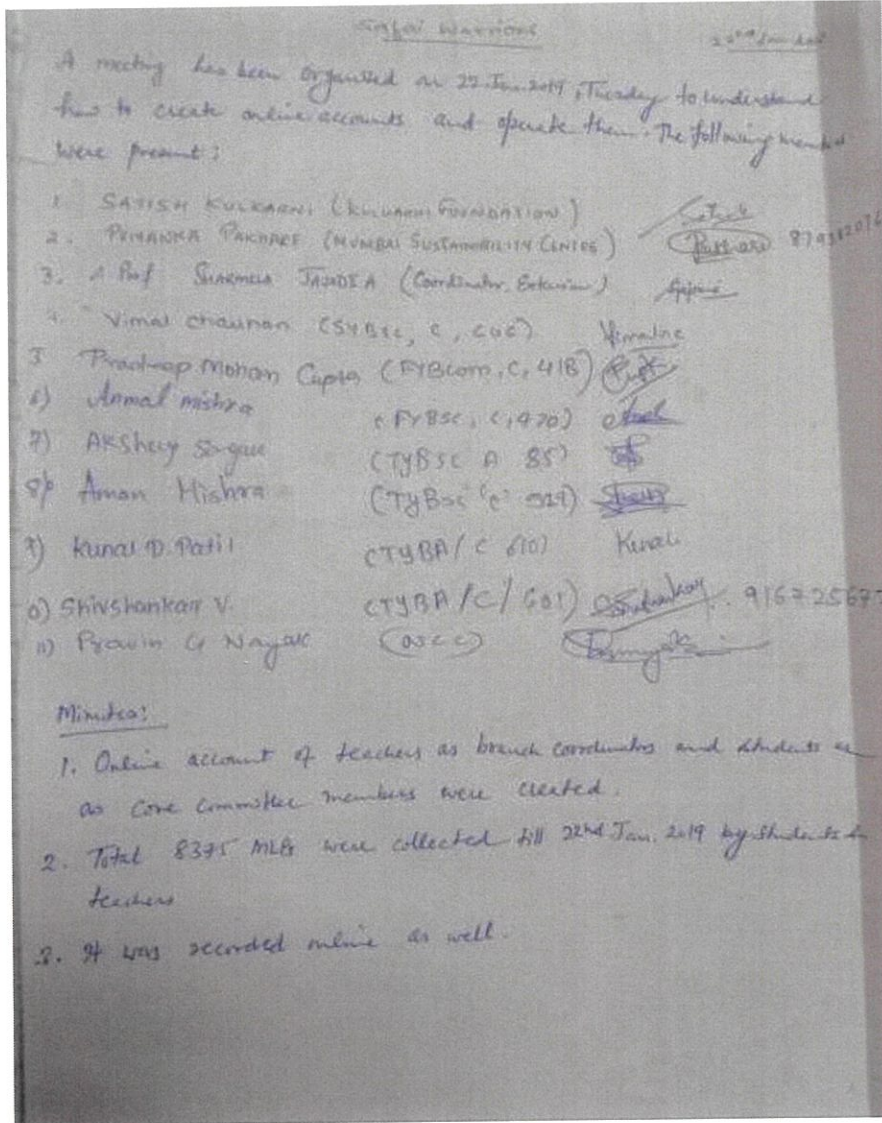 Safai Warriors
22nd Jan
A meeting has been organised on 22.Jan.2019, Tuesday to understand
how to create online accounts and operate them. The following
were present:
1 SATISH KULKARNI (KULKARNI FOUNDATION)
2. PRIYANKA PAKHARE (MUMBAI SUSTAINABILITY CENTRE) Pakhare
3. Prof SHARMILA (Coordinator, Extension)
4. Vimal chauhan (SYBsc, C,
5 Pradeep Mohan Gupta (FYBcom, C, 418)
6) Anmol mishra (FYBSc, C, 420)
7) AKShay (TYBSc A 85)
8) Aman Mishra (TYBsc 'C' 929)
9) Kunal D. Patil (TYBA/ C 610) Kunal
0) Shivshankar V. (TYBA/C/601)
11) Pravin G Nayak
Minutes:
1. Online account of teachers as branch coordinators and students
as core committee members were created.
2. Total 8375 MLPs were collected till 22nd Jan. 2019 by students &
teachers
3. It was recorded online as well.